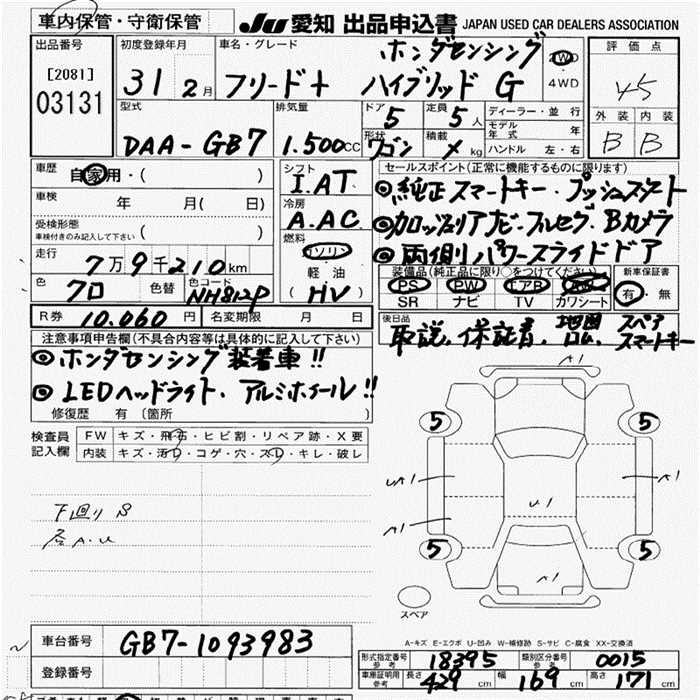 車内保管・守衛保管
JU 愛知 出品申込書 JAPAN USED CAR DEALERS ASSOCIATION
出品番号
[2081]
03131
初度登録年月
31 2月
車名・グレード
ホンダセンシング
フリード+ ハイブリッド G
2WD
・
4WD
評価点
4.5
外装 内装
B B
型式
DAA-GB7
排気量
1.500cc
ドア
5
定員
5人
形状
ワゴン
積載
✗kg
ディーラー・並行
モデル年式 年
ハンドル 左・右
車歴
自家用・( )
車検 年 月( 日)
受検形態
車検付きのみ記入して下さい ( )
走行
7万9千210km
色
クロ
色替
色コード
NH812P
シフト
I.AT
冷房
A.AC
燃料
ガソリン
・
軽油
( HV )
セールスポイント(正常に機能するものに限ります)
◎純正スマートキー・プッシュスタート
◎カロッツェリアナビ・フルセグ・Bカメラ
◎両側パワースライドドア
装備品(純正品に限り○をつけてください)
PS PW エアB ABS
SR ナビ TV カワシート
新車保証書
有・無
R券 10.060円
名変期限 月 日
後日品
取説、保証書、地図ROM、スペアスマートキー
注意事項申告欄(不具合内容等は具体的に記入して下さい)
◎ホンダセンシング装着車!!
◎LEDヘッドライト、アルミホイール!!
修復歴 有〔箇所 〕
検査員記入欄
FW キズ・飛石・ヒビ割・リペア跡・X要
内装 キズ・汚れ・コゲ・穴・スレ・キレ・破レ
下廻りS
A.U
A1
5 5
A1
A1
U1
5 5
A1
スペア
A-キズ E-エクボ U-凹み W-補修跡 S-サビ C-腐食 XX-交換済
車台番号 GB7-1093983
登録番号
形式指定番号
参考
18395
類別区分番号
参考
0015
車庫証明用
参考
長さ 429cm 幅 169cm 高さ 171cm